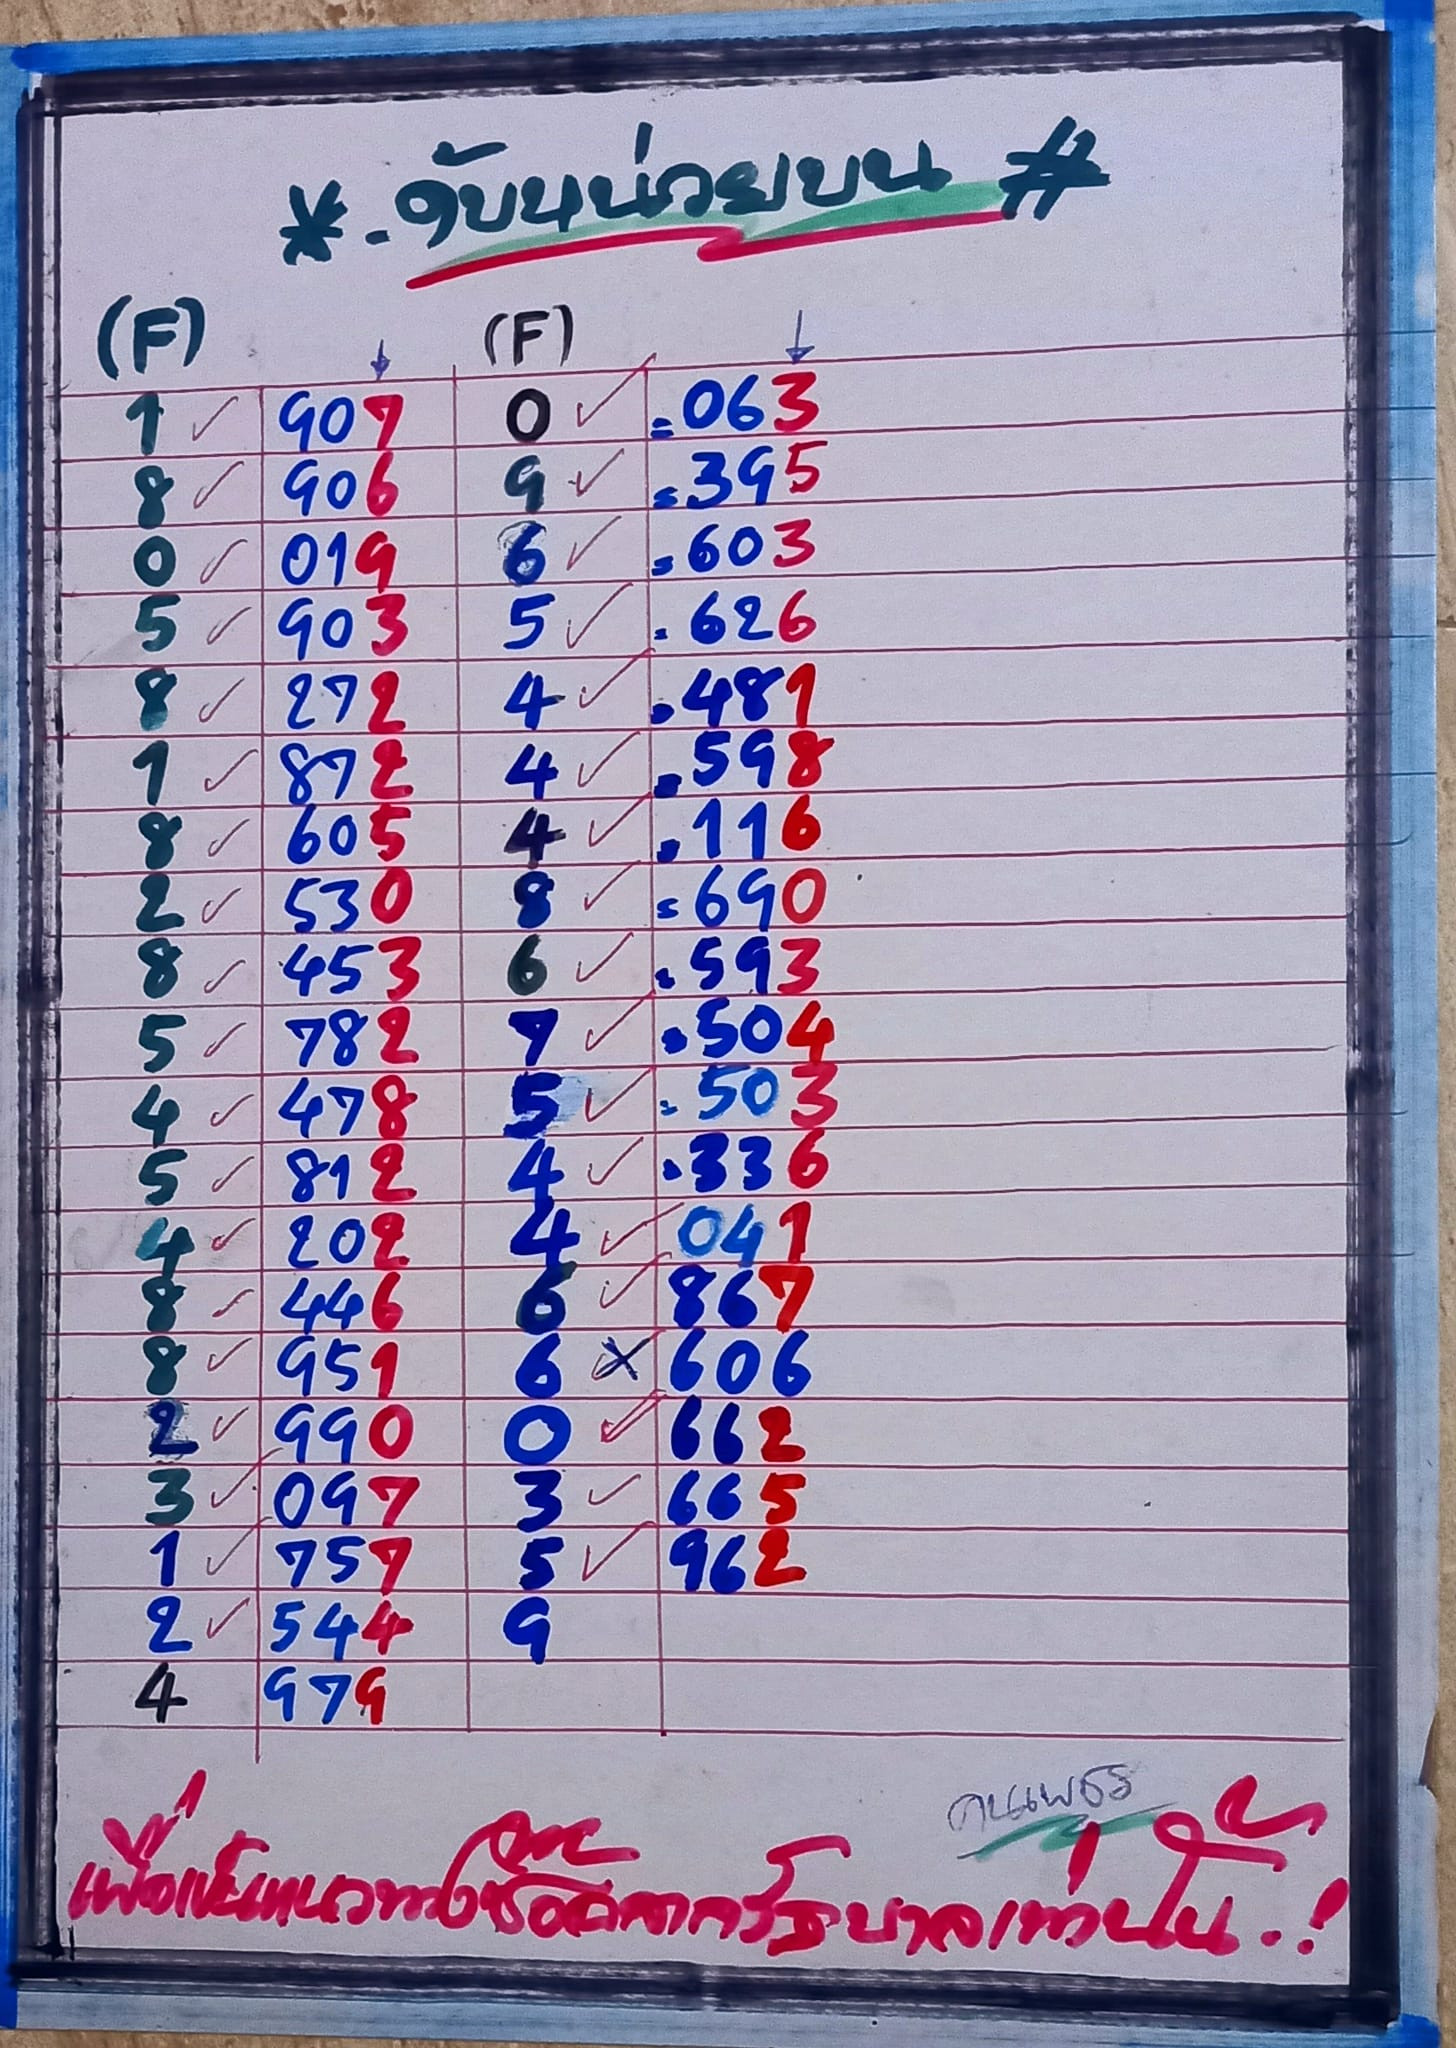 * . ดับหน่วยบน #
(F) (F)
1 ✓ 907 0 ✓ = 063
8 ✓ 906 9 ✓ = 395
0 ✓ 019 6 ✓ = 603
5 ✓ 903 5 ✓ = 626
8 ✓ 272 4 ✓ = 481
1 ✓ 872 4 ✓ = 598
8 ✓ 605 4 ✓ = 116
2 ✓ 530 8 ✓ = 690
8 ✓ 453 6 ✓ = 593
5 ✓ 782 7 ✓ = 504
4 ✓ 478 5 ✓ = 503
5 ✓ 812 4 ✓ = 336
4 ✓ 202 4 ✓ 041
8 ✓ 446 6 ✓ 867
8 ✓ 951 6 ✗ 606
2 ✓ 990 0 ✓ 662
3 ✓ 097 3 ✓ 665
1 ✓ 757 5 ✓ 962
2 ✓ 544 9
4 979
คนเพชร
เพื่อเป็นแนวทางซื้อสลากรัฐบาลเท่านั้น..!